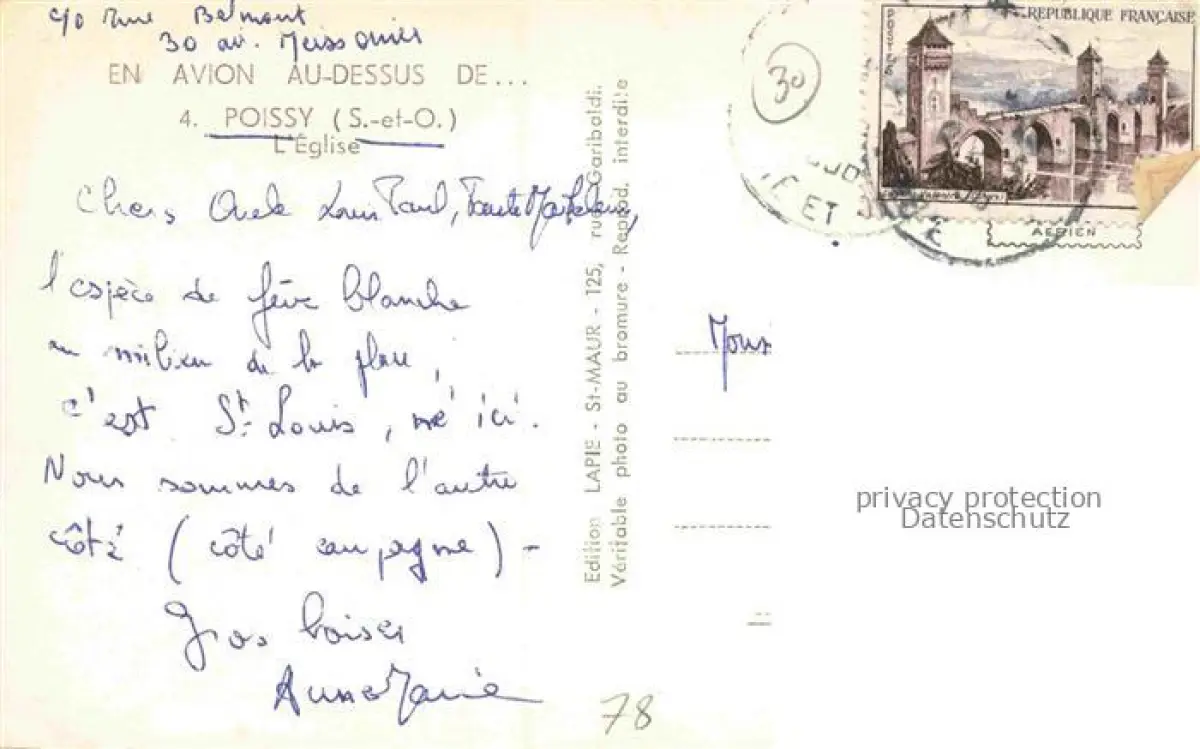 c/o Mme Belmont
30 av. Meissonier
EN AVION AU-DESSUS DE...
4. POISSY (S.-et-O.)
L'Église
Chers Oncle Louis Paul, Tante Madeleine,
l'espèce de fève blanche
au milieu de la place,
c'est St. Louis, né ici.
Nous sommes de l'autre
côté (côté campagne) -
Gros baisers
Anne Marie
78
Edition LAPIE - St-MAUR - 125, rue Garibaldi.
Véritable photo au bromure - Reprod. interdite
30
POSTES
REPUBLIQUE FRANÇAISE
ET
AERIEN
Monsi
privacy protection
Datenschutz